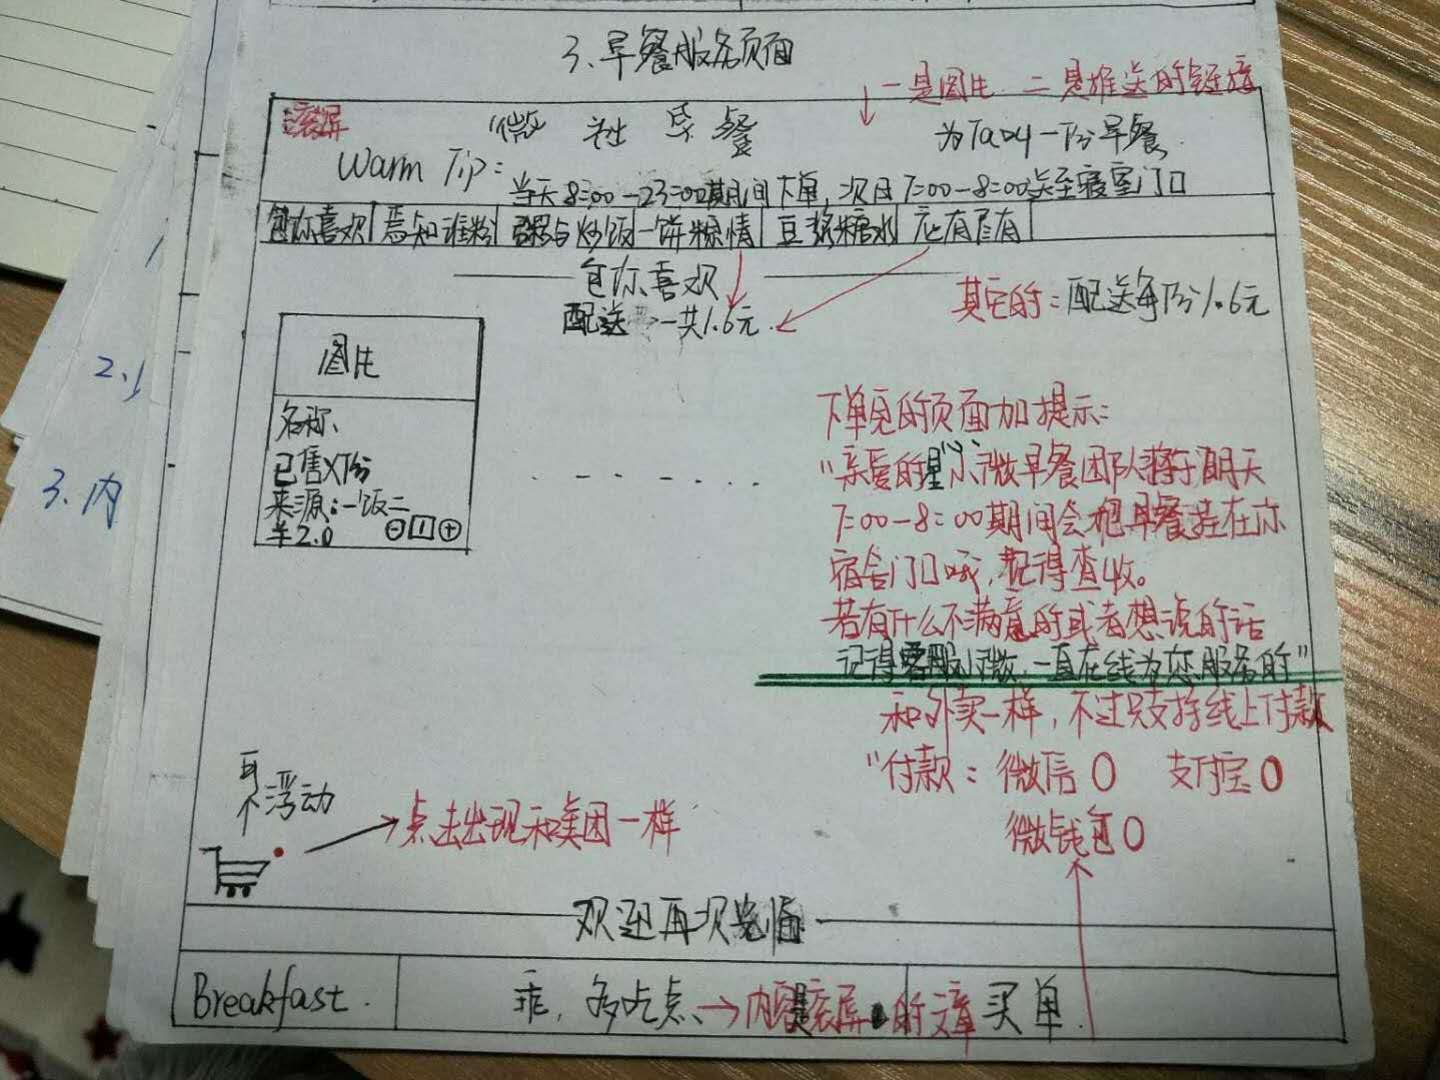 3、早餐服务页面
一是图片 二是推送的链接
滚屏
微社早餐
为Ta叫一份早餐
Warm Tip:
当天8:00-23:00期间下单,次日7:00-8:00送至寝室门口
包你喜欢
焉知谁粉
粥与炒饭
一饼粽情
豆浆糖水
应有尽有
包你喜欢
配送 一共1.6元
其它的:配送每份1.6元
图片
名称、
已售X份
来源:一饭二
¥2.0 ⊖ 1 ⊕
下单完的页面加提示:
"亲爱的 小微早餐团队将于明天
7:00-8:00期间会把早餐挂在你
宿舍门口哦,记得查收。
若有什么不满意的或者想说的话
记得客服小微,一直在线为您服务的"
和外卖一样,不过只支持线上付款
"付款:微信O 支付宝O
微钱包O
不浮动
点击出现和美团一样
欢迎再次光临
Breakfast.
乖,多吃点、
→内容是滚屏的文章
买单.
2、
3、内